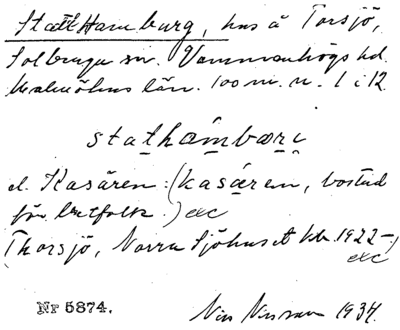 Statt Hamburg, hus å Torsjö,
Solberga sn. Vemmenhögs hd.
Malmöhus län. 100 m. n. 1 i 12
stathámbærı
el. Kasären: (kasáren, bostad
för bretfolk.) exc
Thorsjö, Norra Sjöhuset kbr. 1922–,
exc
Nr 5874.
Nils Nilsson 1934.